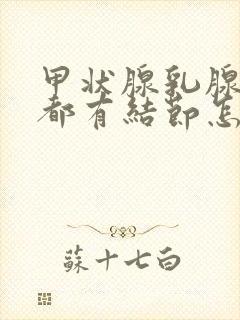 甲状腺乳腺
都有結節怎
蘇十七白